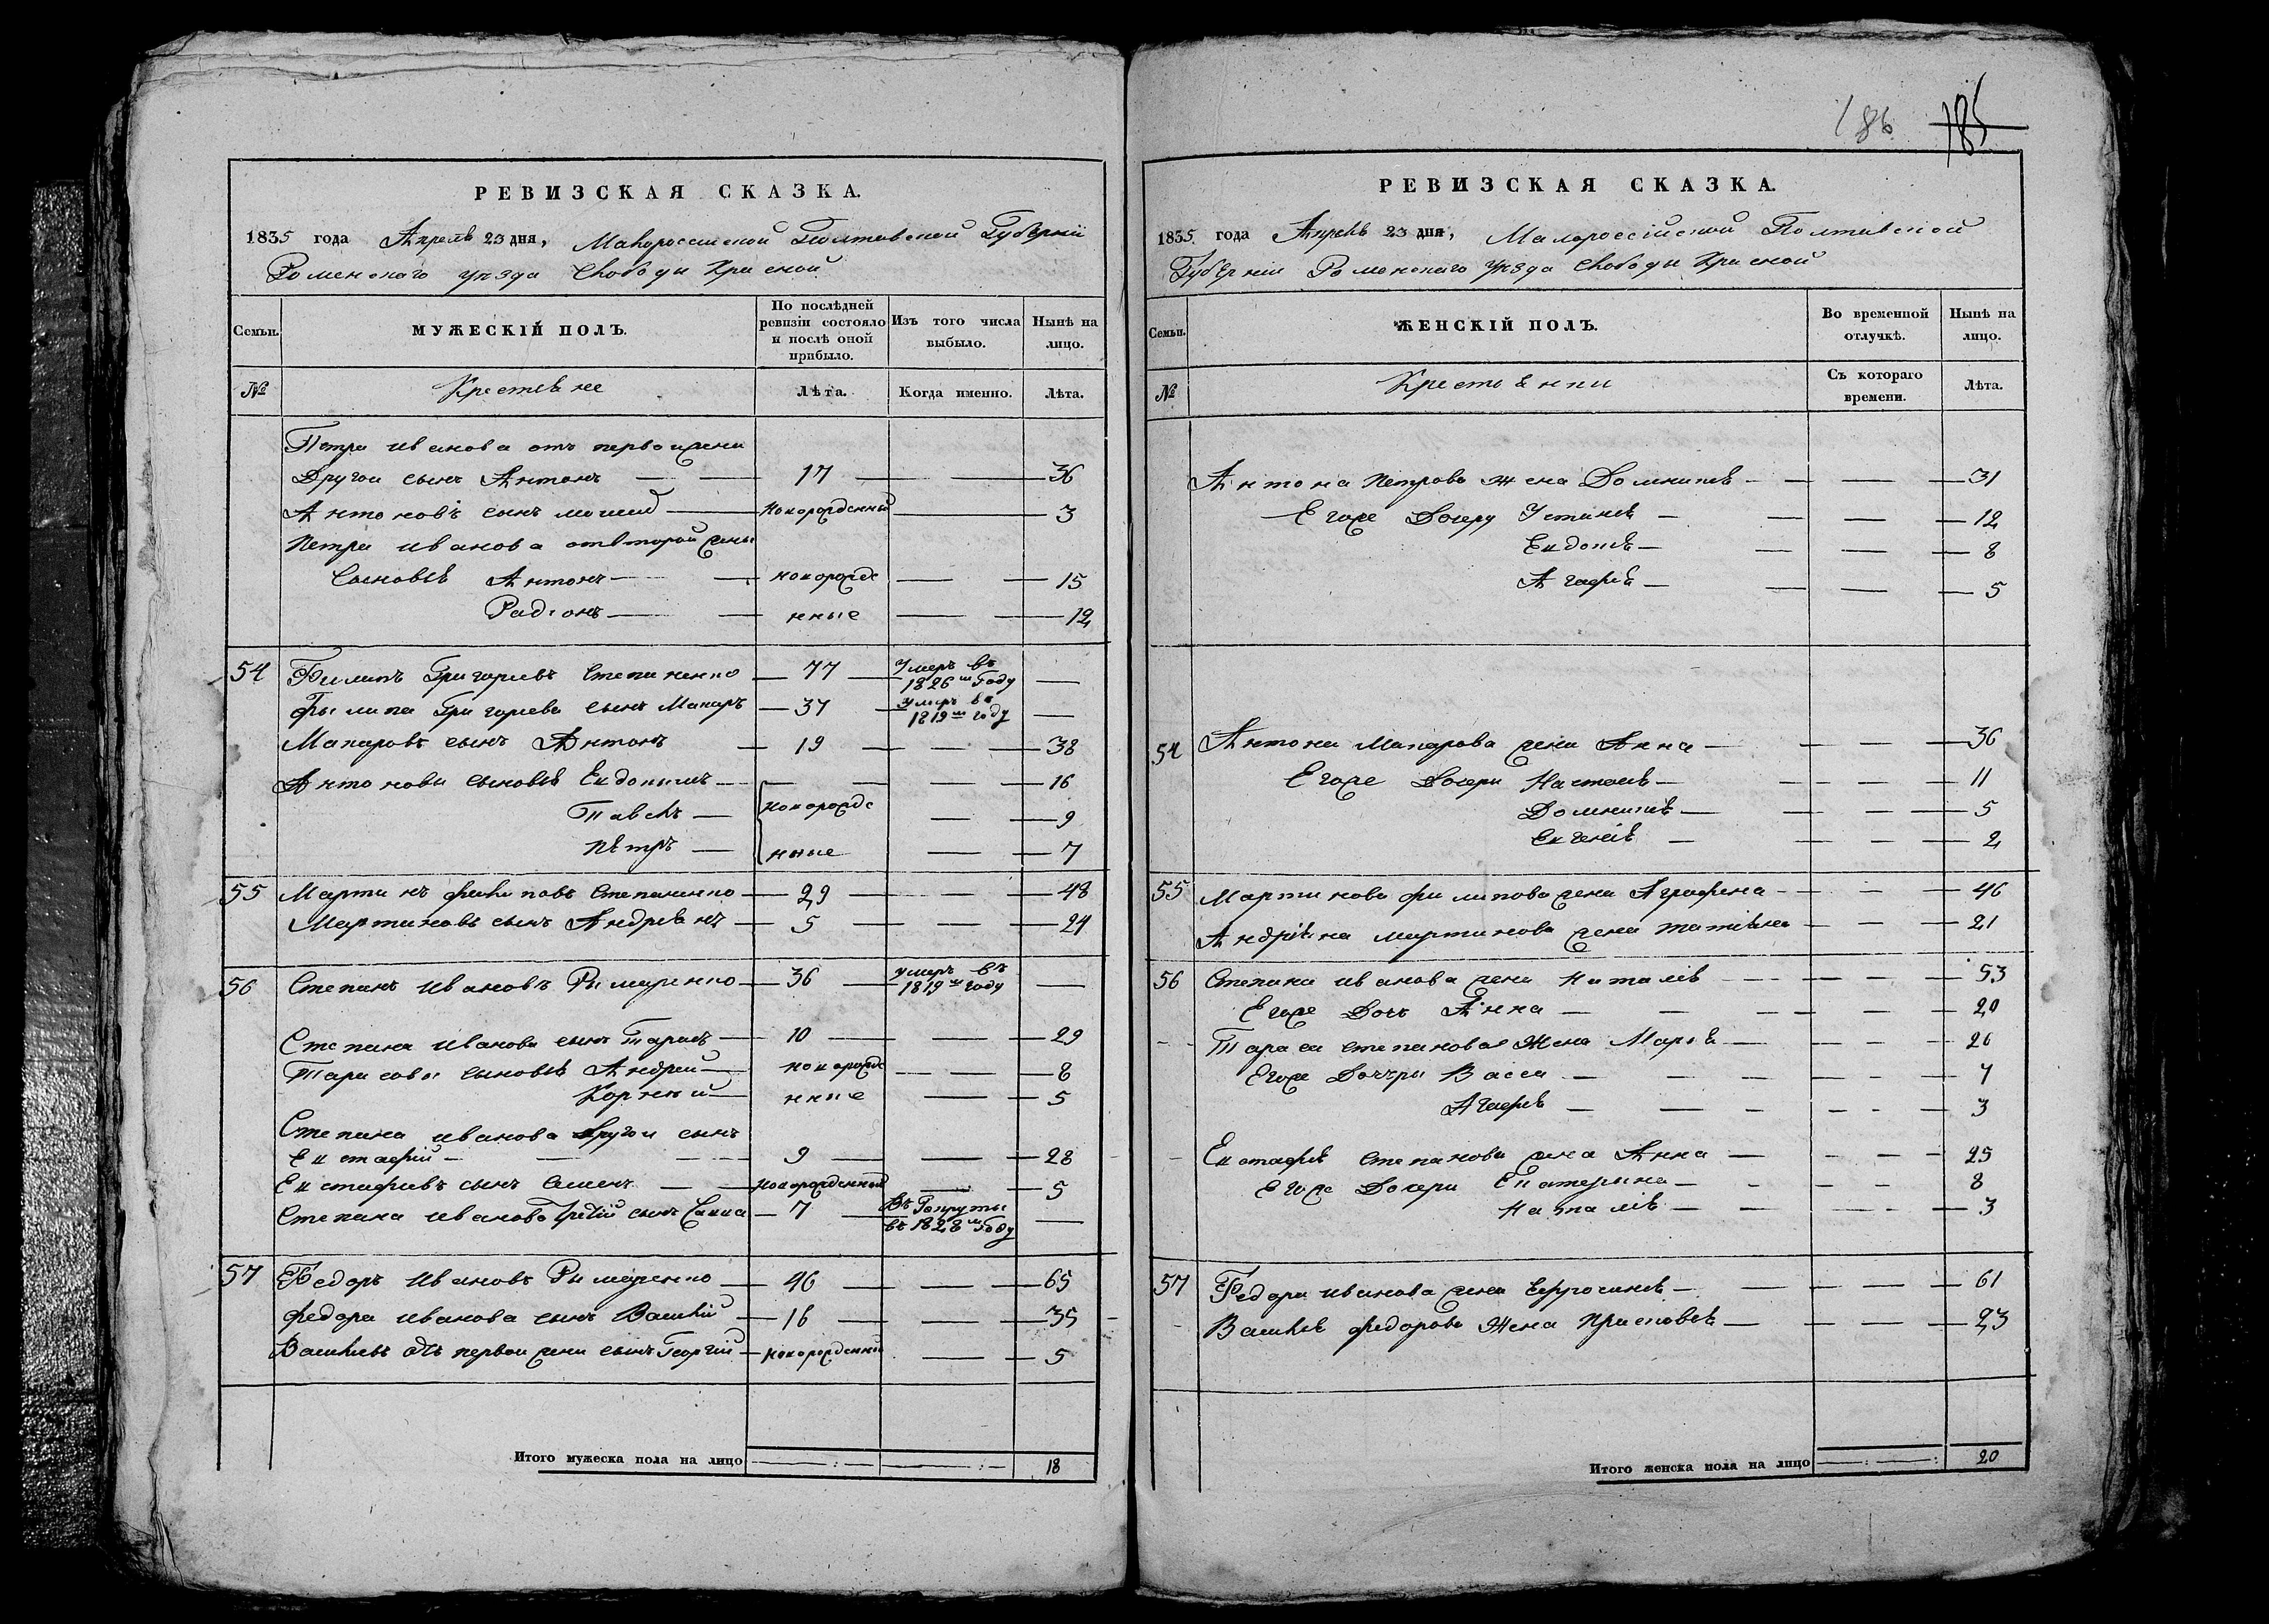 РЕВИЗСКАЯ СКАЗКА.
1835 года Апреля 23 дня, Малороссийской Полтавской Губерніи
Роменского уезда Слободы Красной
Семьи. МУЖЕСКІЙ ПОЛЪ. По послѣдней ревизіи состояло и послѣ оной прибыло. Изъ того числа выбыло. Нынѣ на лицо.
№ Крестьяне Лѣта. Когда именно. Лѣта.
Петра Иванова отъ первой жени
Другои сынъ Антонъ 17 36
Антоновъ сынъ новорожденный 3
Петра Иванова отвторой жены
Сыновья Антонъ новорожде 15
Радіонъ нные 12
54 Филипъ Григорьевъ Степаненко 77 Умеръ въ 1826м Году
Филипа Григорьева сынъ Макаръ 37 умеръ въ 1819м году
Макаровъ сынъ Антонъ 19 38
Антонови сыновья Евдокимъ 16
Павелъ новорожде 9
Петръ нные 7
55 Мартинъ Филиповъ Степаненко 29 48
Мартиновъ сынъ Андреянъ 5 24
56 Степанъ Ивановъ Римаренко 36 умеръ въ 1819м году
Степана Иванова сынъ Тарасъ 10 29
Тарасовы сыновья Андрей новорожде 8
Корней нные 5
Степана Иванова Другои сынъ
Евстафій 9 28
Евстафиевъ сынъ Семенъ новорожденной 5
Степана Иванова Третій сынъ Савва 7 Въ Рекруты въ 1828м Году
57 Федоръ Ивановъ Римаренко 46 65
Федора Иванова сынъ Василій 16 35
Васильевъ отъ первои жени сынъ Георгий новорожденній 5
Итого мужеска пола на лицо 18
186 185
РЕВИЗСКАЯ СКАЗКА.
1835 года Апреля 23 дня, Малороссійской Полтавской
Губерніи Роменскаго уезда Слободы Красной
Семьи. ЖЕНСКІЙ ПОЛЪ. Во временной отлучкѣ. Нынѣ на лицо.
№ Крестьянки Съ котораго времени. Лѣта.
Антона Петрова жена Домникія 31
Егоже Дочеру Устинія 12
Евдокія 8
Агафія 5
54 Антона Макарова жена Анна 36
Егоже Дочери Настасія 11
Домникія 5
Евгенія 2
55 Мартинова Филипова жена Аграфена 46
Андріяна Мартинова жена Татіяна 21
56 Степана Иванова жена Наталія 53
Егоже Дочь Анна 20
Тараса Степанова Жена Марія 26
Егоже Дочери Васса 7
Агафія 3
Евстафія Степанова жена Анна 25
Егоже Дочери Екатерина 8
Наталія 3
57 Федора Иванова жена Ефросинія 61
Василія Федорова Жена Присковія 23
Итого женска пола на лицо 20